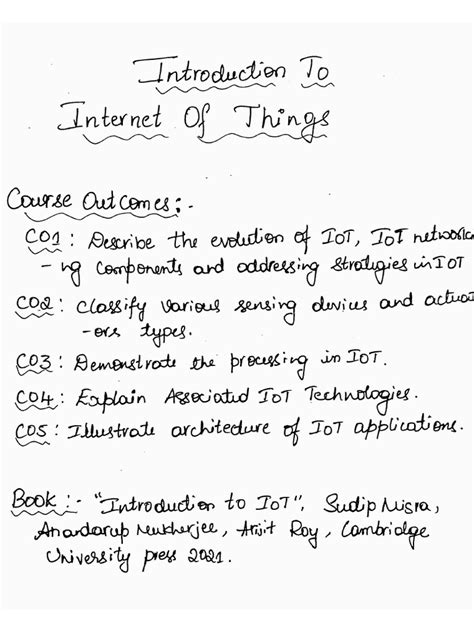 Introduction To
Internet Of Things
Course Outcomes:-
CO1: Describe the evolution of IoT, IoT network
-ng components and addressing strategies in IoT
CO2: Classify various sensing devices and actuat
-ors types.
CO3: Demonstrate the processing in IoT.
CO4: Explain Associated IoT Technologies.
CO5: Illustrate architecture of IoT applications.
Book:- "Introduction to IoT", Sudip Misra,
Anandarup Mukherjee, Arijit Roy, Cambridge
University press 2021.